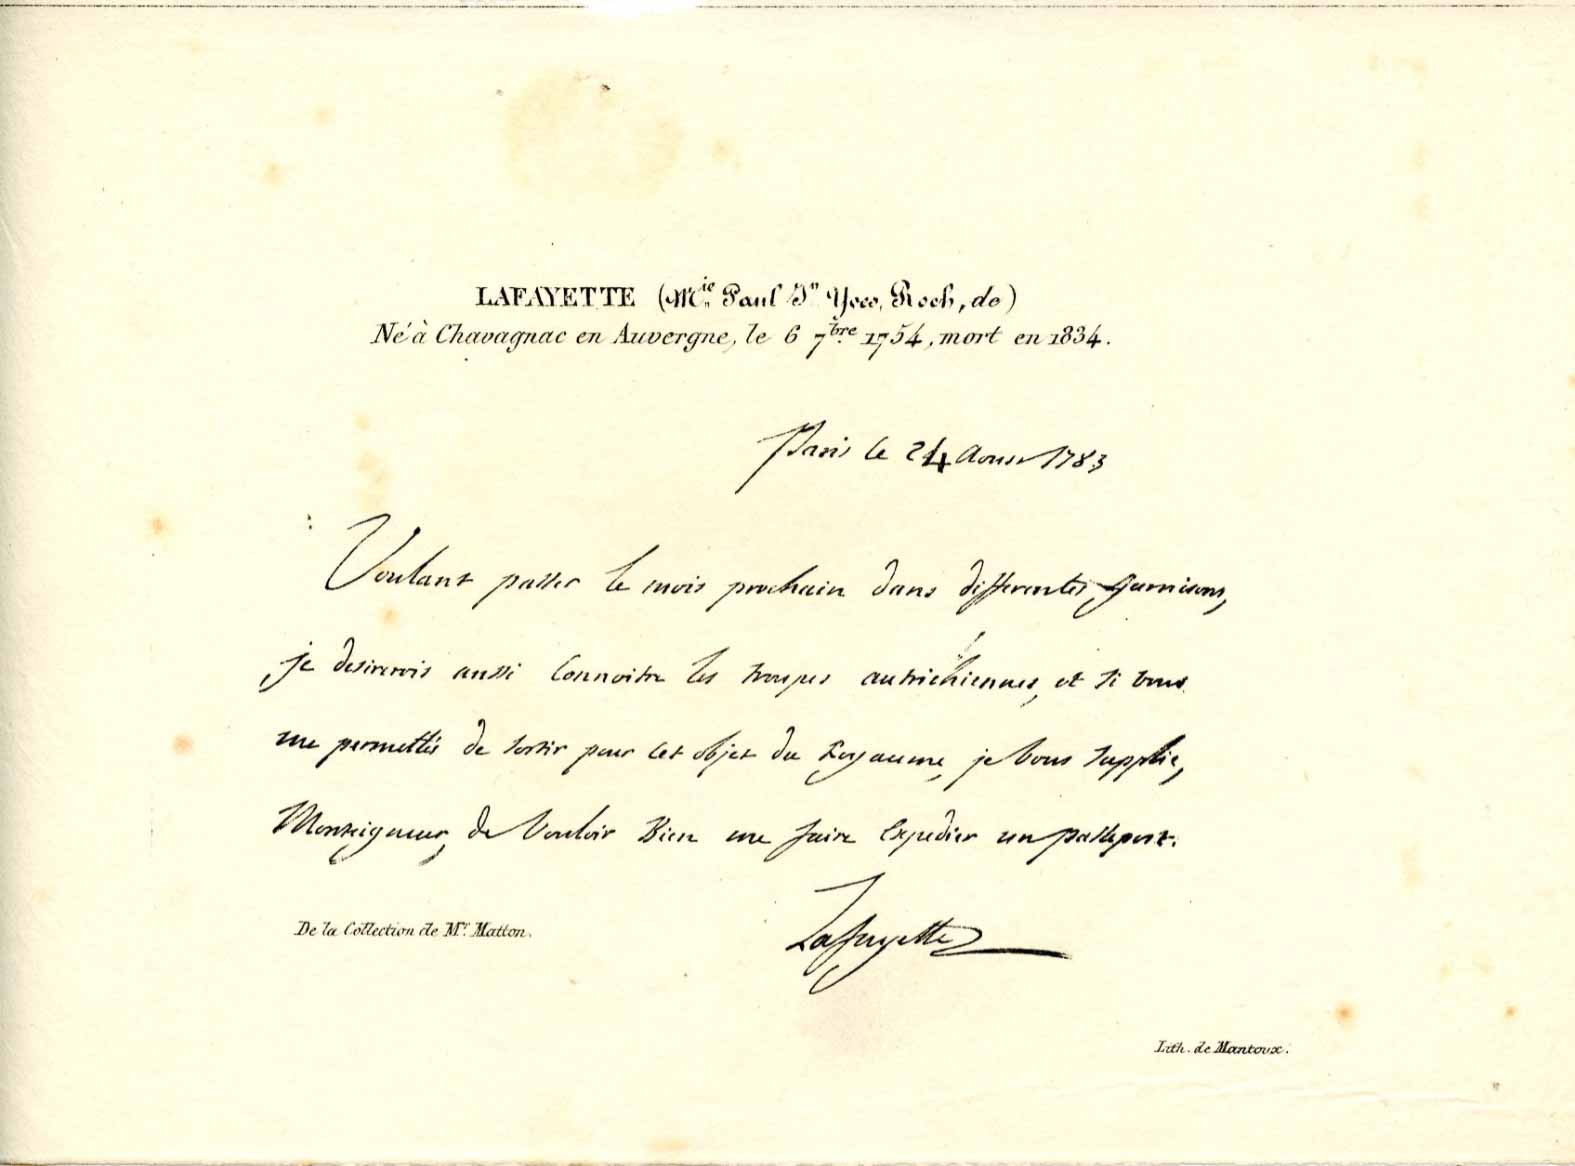 LAFAYETTE (Mie Paul Jn Yves, Roch, de)
Né à Chavagnac en Auvergne, le 6 7bre 1754, mort en 1834.
Paris le 24 Aoust 1783
Voulant passer le mois prochain dans differentes garnisons,
je desirerois aussi connoitre les troupes autrichiennes, et si vous
me permettés de sortir pour cet objet du Royaume, je vous supplie,
Monseigneur, de vouloir bien me faire expedier un passeport.
Lafayette
De la Collection de Mr. Matton.
Lith. de Mantoux.